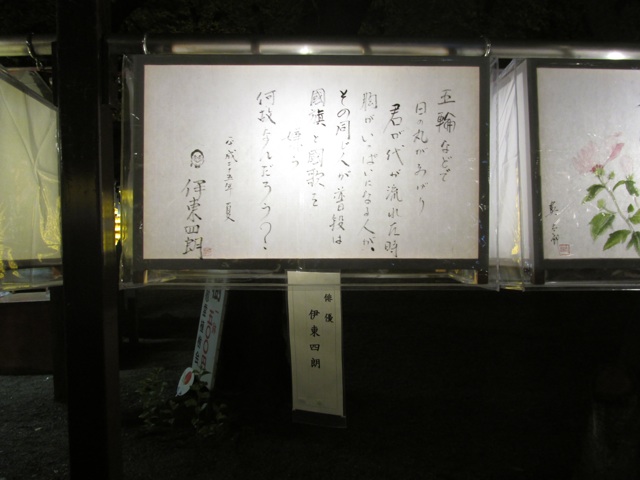 五輪などで
日の丸があがり
君が代が流れた時
胸がいっぱいになる人が、
その同じ人が普段は
國旗と國歌を
嫌う
何故なんだろう?
平成二十五年 夏
伊東四朗
俳優
伊東四朗